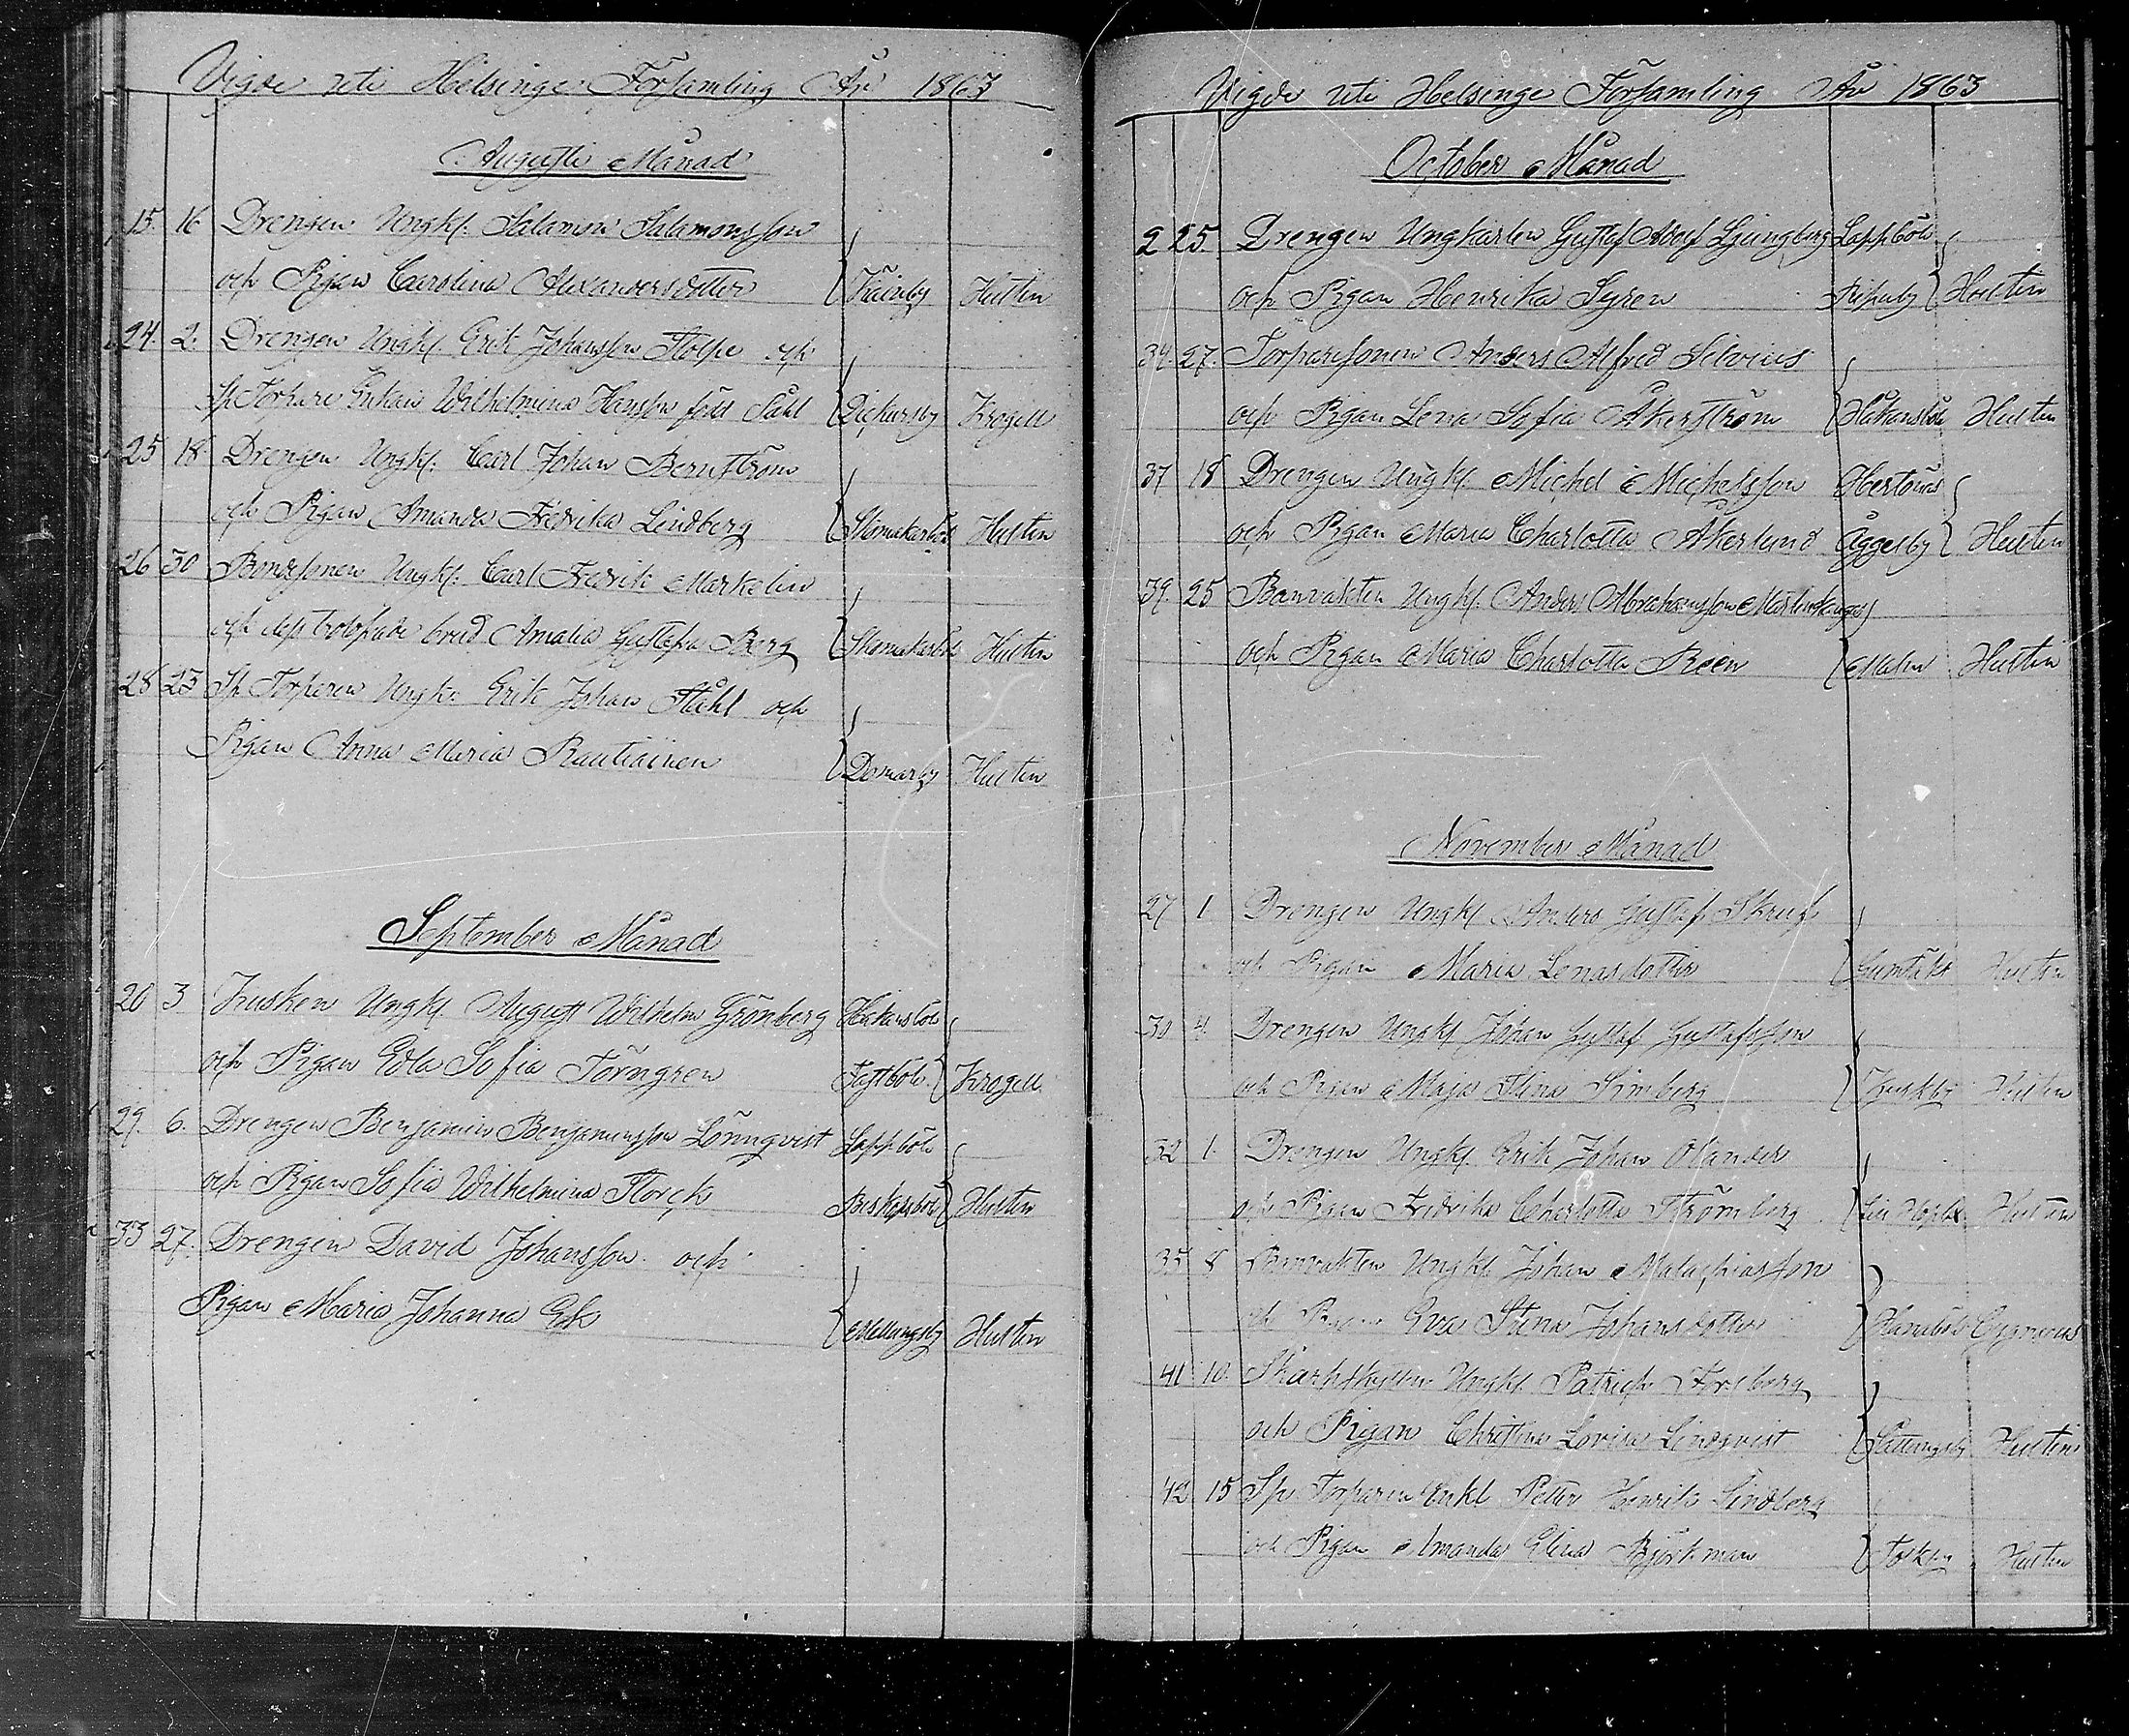 Vigde uti Helsinge Församling År 1863
Augusti Månad
15. 16 Drengen Ungkl. Salamon Salamonsson
och Pigan Carolina Alexandersdotter Hultin
24. 2. Drengen Ungkl. Erik Johansson Stolpe och
Sp. Torpare Enkan Wilhelmina Hansson född Ståhl Dickursby Krogell
25 18 Drengen Ungkl. Carl Johan Bernström
och Pigan Amanda Fredrika Lindberg Skomakarböle Hultin
26 30 Bondesonen Ungkl. Carl Fredrik Markelin
och dess trolofvade brud Amalia Gustafva Berg Skomakarböle Hultin
28 23 Sp. Torparen Ungk. Erik Johan Ståhl och
Pigan Anna Maria Rautiainen Domarby Hultin
September Månad
20 3 Kusken Ungkl. August Wilhelm Grönberg Håkansböle
och Pigan Edla Sofia Törngren Fastböle Krogell
29. 6. Drengen Benjamin Benjaminsson Lönnqvist Lappböle
och Pigan Sofia Wilhelmina Storck Biskopsböle Hultin
33 27. Drengen David Johansson och
Pigan Maria Johanna Ek Mellungsby Hultin
Vigde uti Helsinge Församling År 1863
October Månad
2 25 Drengen Ungkarlen Gustaf Adolf Ljungberg Lappböle
och Pigan Henrika Syren Hultin
34. 27. Torparesonen Anders Alfred Silvius
och Pigan Lena Sofia Åkerström Håkansböle Hultin
37 18 Drengen Ungkl. Michel Michelsson Hertonäs
och Pigan Maria Charlotta Åkerlund Åggelby Hultin
39. 25 Banvakten Ungkl. Anders Abrahamsson
och Pigan Maria Charlotta Reen Malm Hultin
November Månad
27 1 Drengen Ungkl. Anders Gustaf Skruf
och Pigan Maria Lenasdotter Gumtäkt Hultin
30 4. Drengen Ungkl. Johan Gustaf Gustafsson
och Pigan Maja Stina Simberg Hultin
32 1. Drengen Ungkl. Erik Johan Olander
och Pigan Fredrika Charlotta Strömberg Hultin
35 8 Banvakten Ungkl. Johan Malachiasson
och Pigan Eva Stina Johansdotter Cygnæus
41 10. Skarpskytten Ungkl. Patrick Forsberg
och Pigan Christina Lovisa Lindqvist Hultin
42 15 Sp. Torparen Enkl. Petter Henrik Lindberg
och Pigan Amanda Elina Björkman Tolkby Hultin